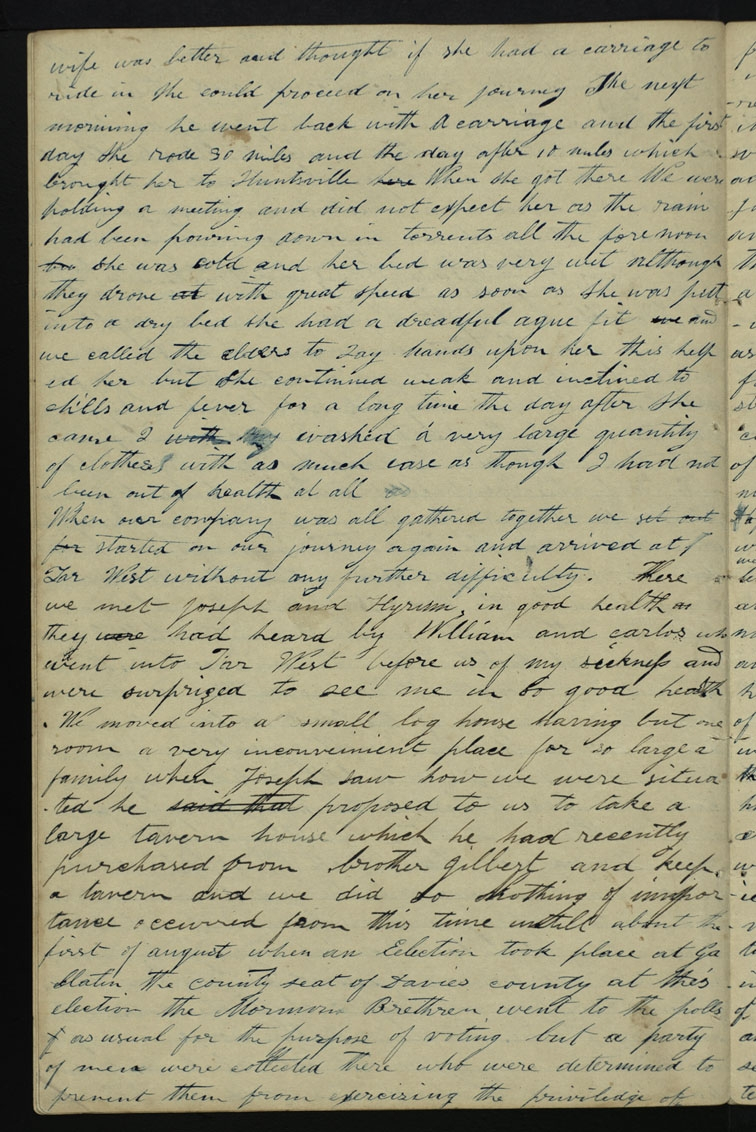 wife was better and thought if she had a carriage to
ride in she could proceed on her journey The next
morning he went back with a carriage and the first
day she rode 30 miles and the day after 10 miles which
brought her to Huntsville here When she got there We were
holding a meeting and did not expect her as the rain
had been pouring down in torrents all the fore noon
she was cold and her bed was very wet although
they drove at with great speed as soon as she was putt
into a dry bed she had a dreadful ague fit we and
we called the elders to Lay hands upon her this help
ed her but she continued weak and inclined to
chills and fever for a long time the day after she
came I with my washed a very large quantity
of clothes with as much ease as though I had not
been out of health at all
When our company was all gathered together we set out
for started on our journey again and arrived at
Far West without any further difficulty. There
we met Joseph and Hyrum, in good health as
they were had heard by William and carlos who
went into Far West before us of my sickness and
were surprized to see me in so good health
. We moved into a small log house having but one
room a very inconveinient place for so large a
family when Joseph saw how we were situa
-ted he said that proposed to us to take a
large tavern house which he had recently
purchased from brother Gilbert and keep
a tavern and we did so nothing of impor-
tance occurred from this time untill about the
first of august when an Eelection took place at Ga
llatin the county seat of Davies county at this
election the Mormon Brethren went to the polls
as usual for the purpose of voting but a party
of men were collected there who were determined to
prevent them from exercising the priviledge of